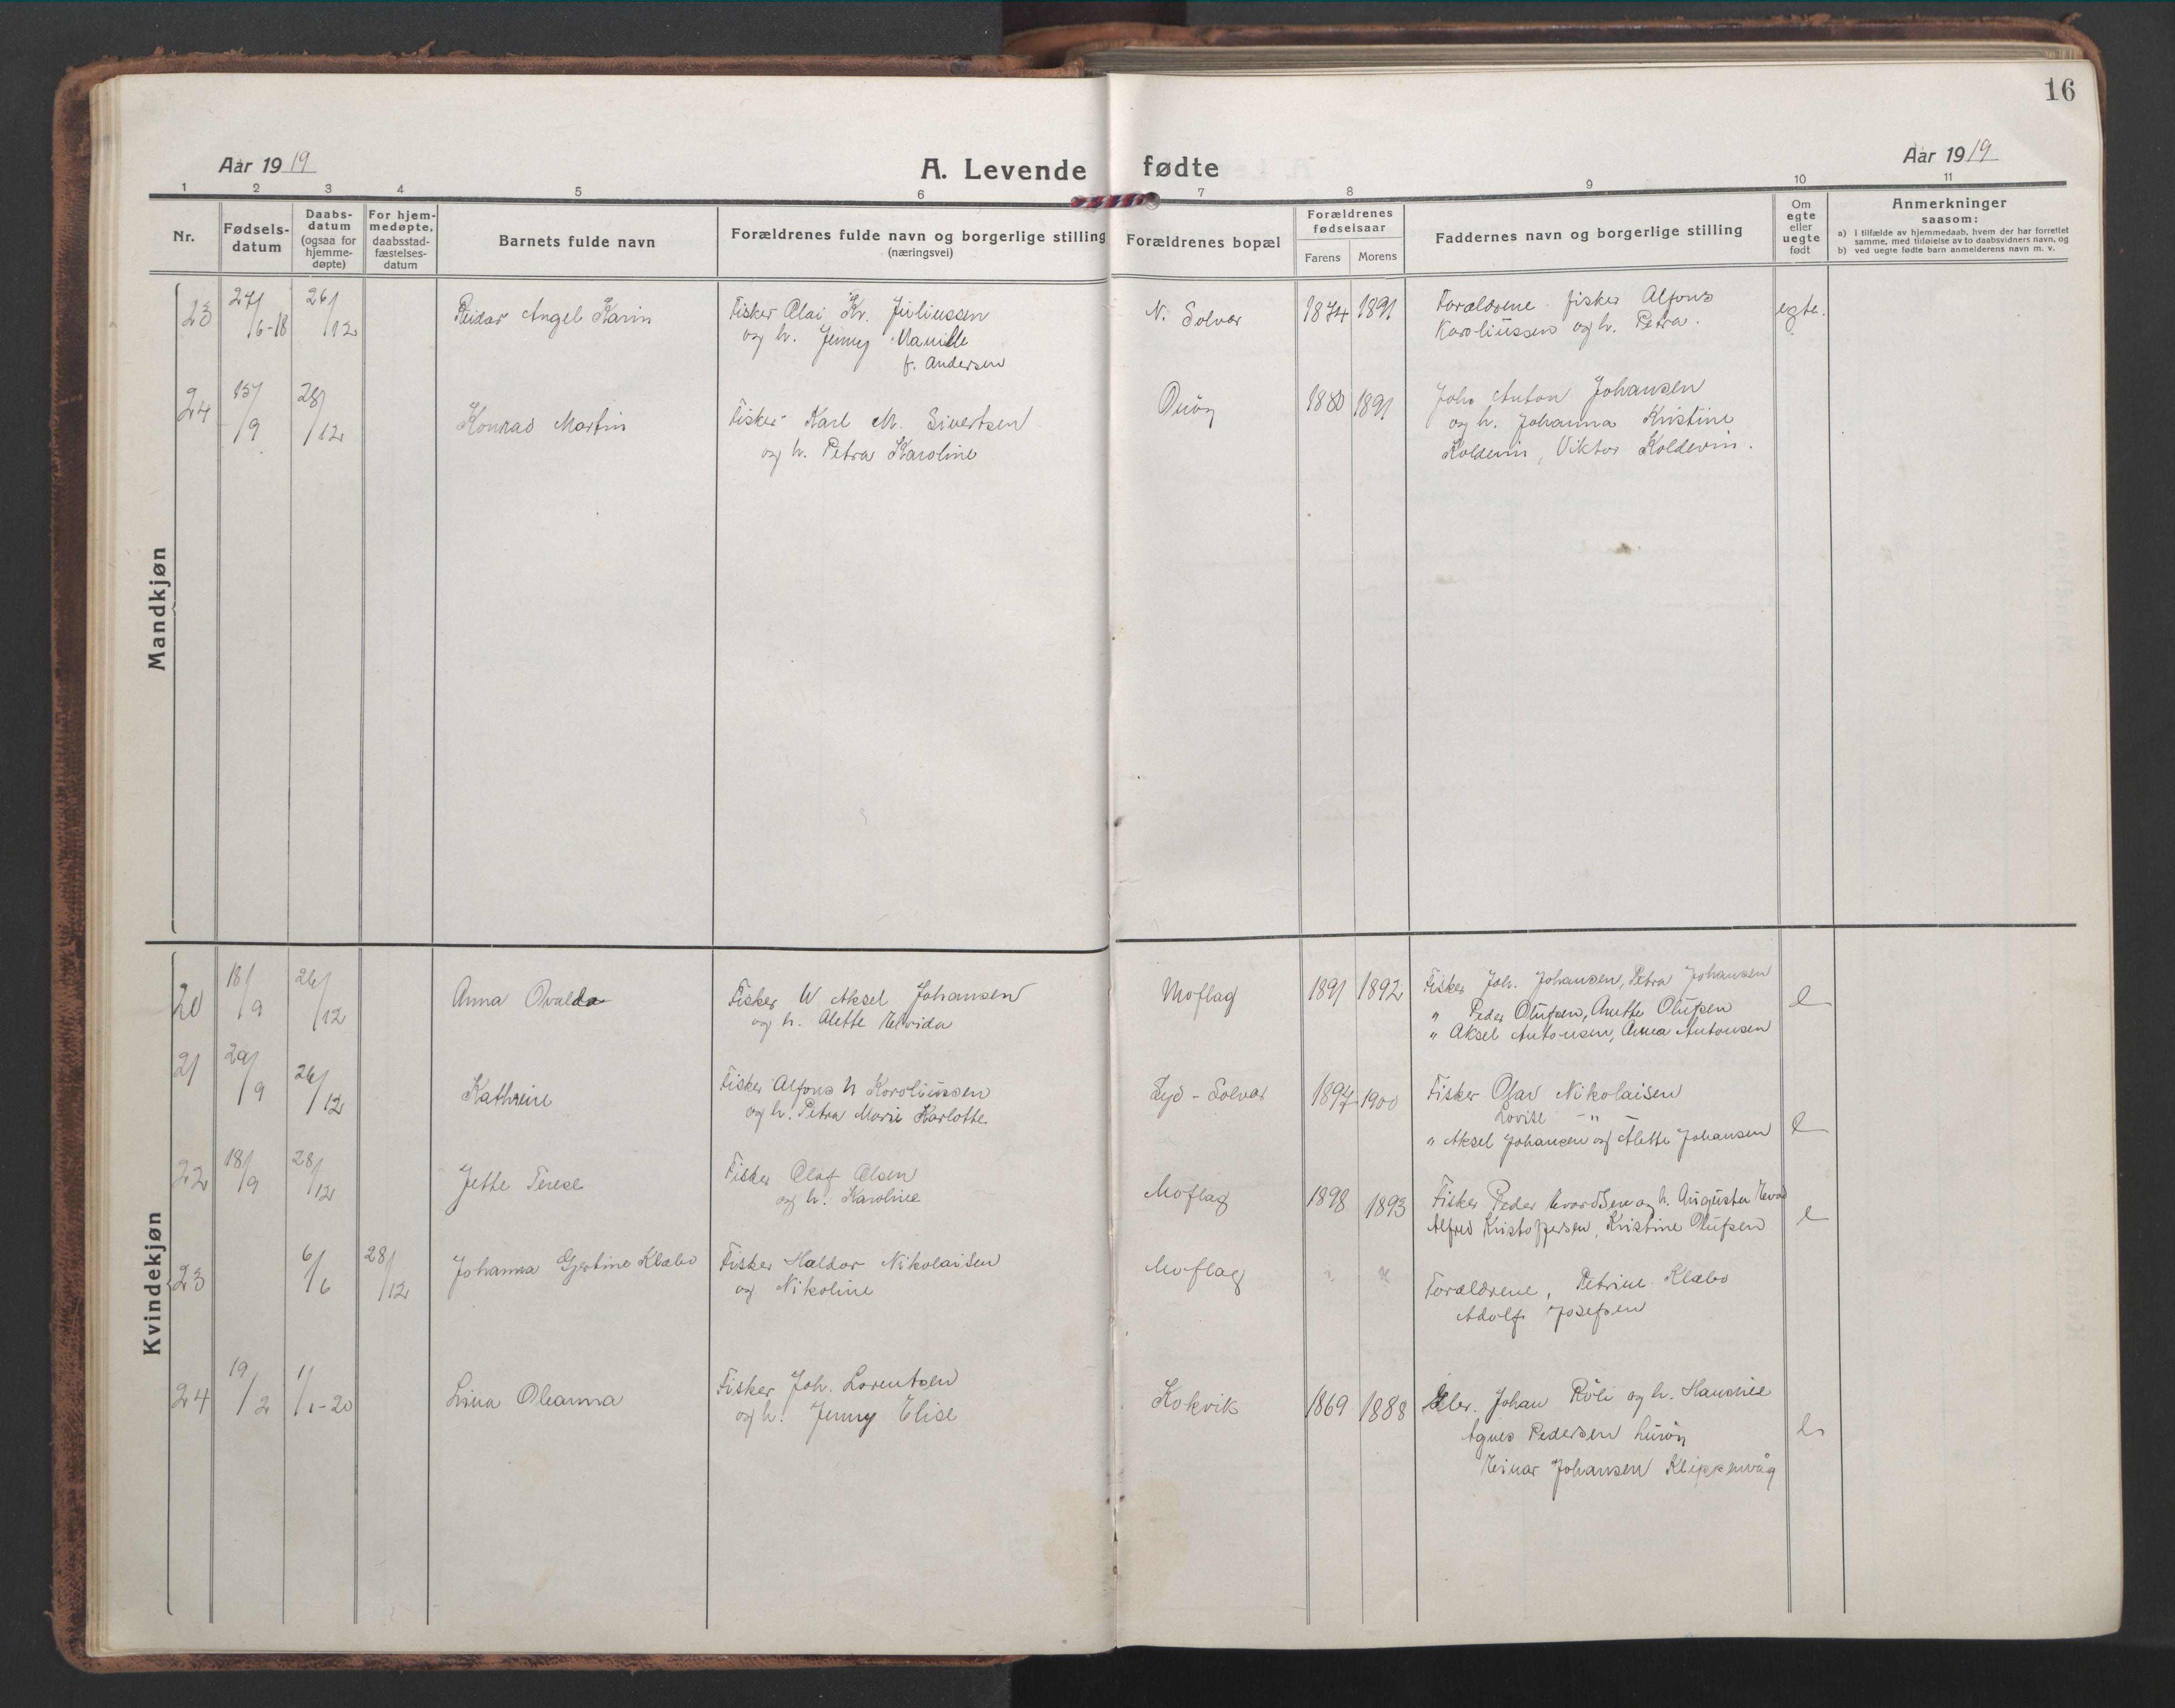 16
Aar 1919
A. Levende fødte
Aar 1919
1 2 3 4 5 6 7 8 9 10 11
Nr.
Fødsels-
datum
Daabs-
datum
(ogsaa for
hjemme-
døpte)
For hjem-
medøpte,
daabsstad-
fæstelses-
datum
Barnets fulde navn
Forældrenes fulde navn og borgerlige stilling
(næringsvei)
Forældrenes bopæl
Forældrenes
fødselsaar
Farens Morens
Faddernes navn og borgerlige stilling
Om
egte
eller
uegte
født
Anmerkninger
saasom:
a) I tilfælde av hjemmedaab, hvem der har forrettet
samme, med tilføielse av to daabsvidners navn, og
b) ved uegte fødte barn anmelderens navn m. v.
Mandkjøn
23 27/6-18 26/12 Reidar Angel Karin
Fisker Olai Kr. Juliussen
og h. Jenny
f. Andersen
N. Solvær 1874 1891
Forældrene fisker Alfons
Karoliussen og h. Petra.
egte.
24 15/9 28/12 Konrad Martin
Fisker Karl M. Sivertsen
og h. Petra Karoline
Onöy 1880 1891
Joh. Anton Johansen
og h. Johanna Kristine
Koldevin, Viktor Koldevin.
Kvindekjøn
20 18/9 26/12 Anna Ovalda
Fisker Aksel Johansen
og h. Alette Elvida
Moflag 1891 1892
Fisker Joh. Johansen, Petra Johansen
" Peder Olufsen, Anette Olufsen
" Aksel Antonsen, Anna Antonsen
e
21 29/9 26/12 Kathrine
Fisker Alfons N Karoliussen
og h. Petra Marie Karlotte
Syd-Solvær 1897 1900
Fisker Olav Nikolaisen
Lovise -"-
" Aksel Johansen og Alette Johansen
e
22 18/9 28/12 Jette Terese
Fisker Olaf Olsen
og h. Karoline
Moflag 1898 1893
Fisker Peder Evardsen og h. Augusta
Alfred Kristoffersen, Kristine Olufsen
e
23 6/6 28/12 Johanna Gjertine Klæbo
Fisker Haldor Nikolaisen
og Nikoline
Moflag ? ?
Forældrene, Petrine Klæbo
Adolf Josefsen
24 19/2 1/1-20 Lina Oleanna
Fisker Joh. Lorentsen
og h. Jenny Elise
Kokvik 1869 1888
Johan Röli og h. Hansine
Agnes Pedersen Luröy
Einar Johansen Klippenvåg
e